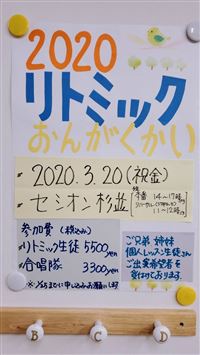 2020
リトミック
おんがくかい
2020.3.20(祝金)
セシオン杉並
本番 14〜17時
リハーサル
11〜12時
参加費(税込み)
リトミック生徒 5500yen
合唱隊 3300yen
ご兄弟 姉妹
個人レッスン生徒さん
ご出演希望者を
受付けております。
B C D